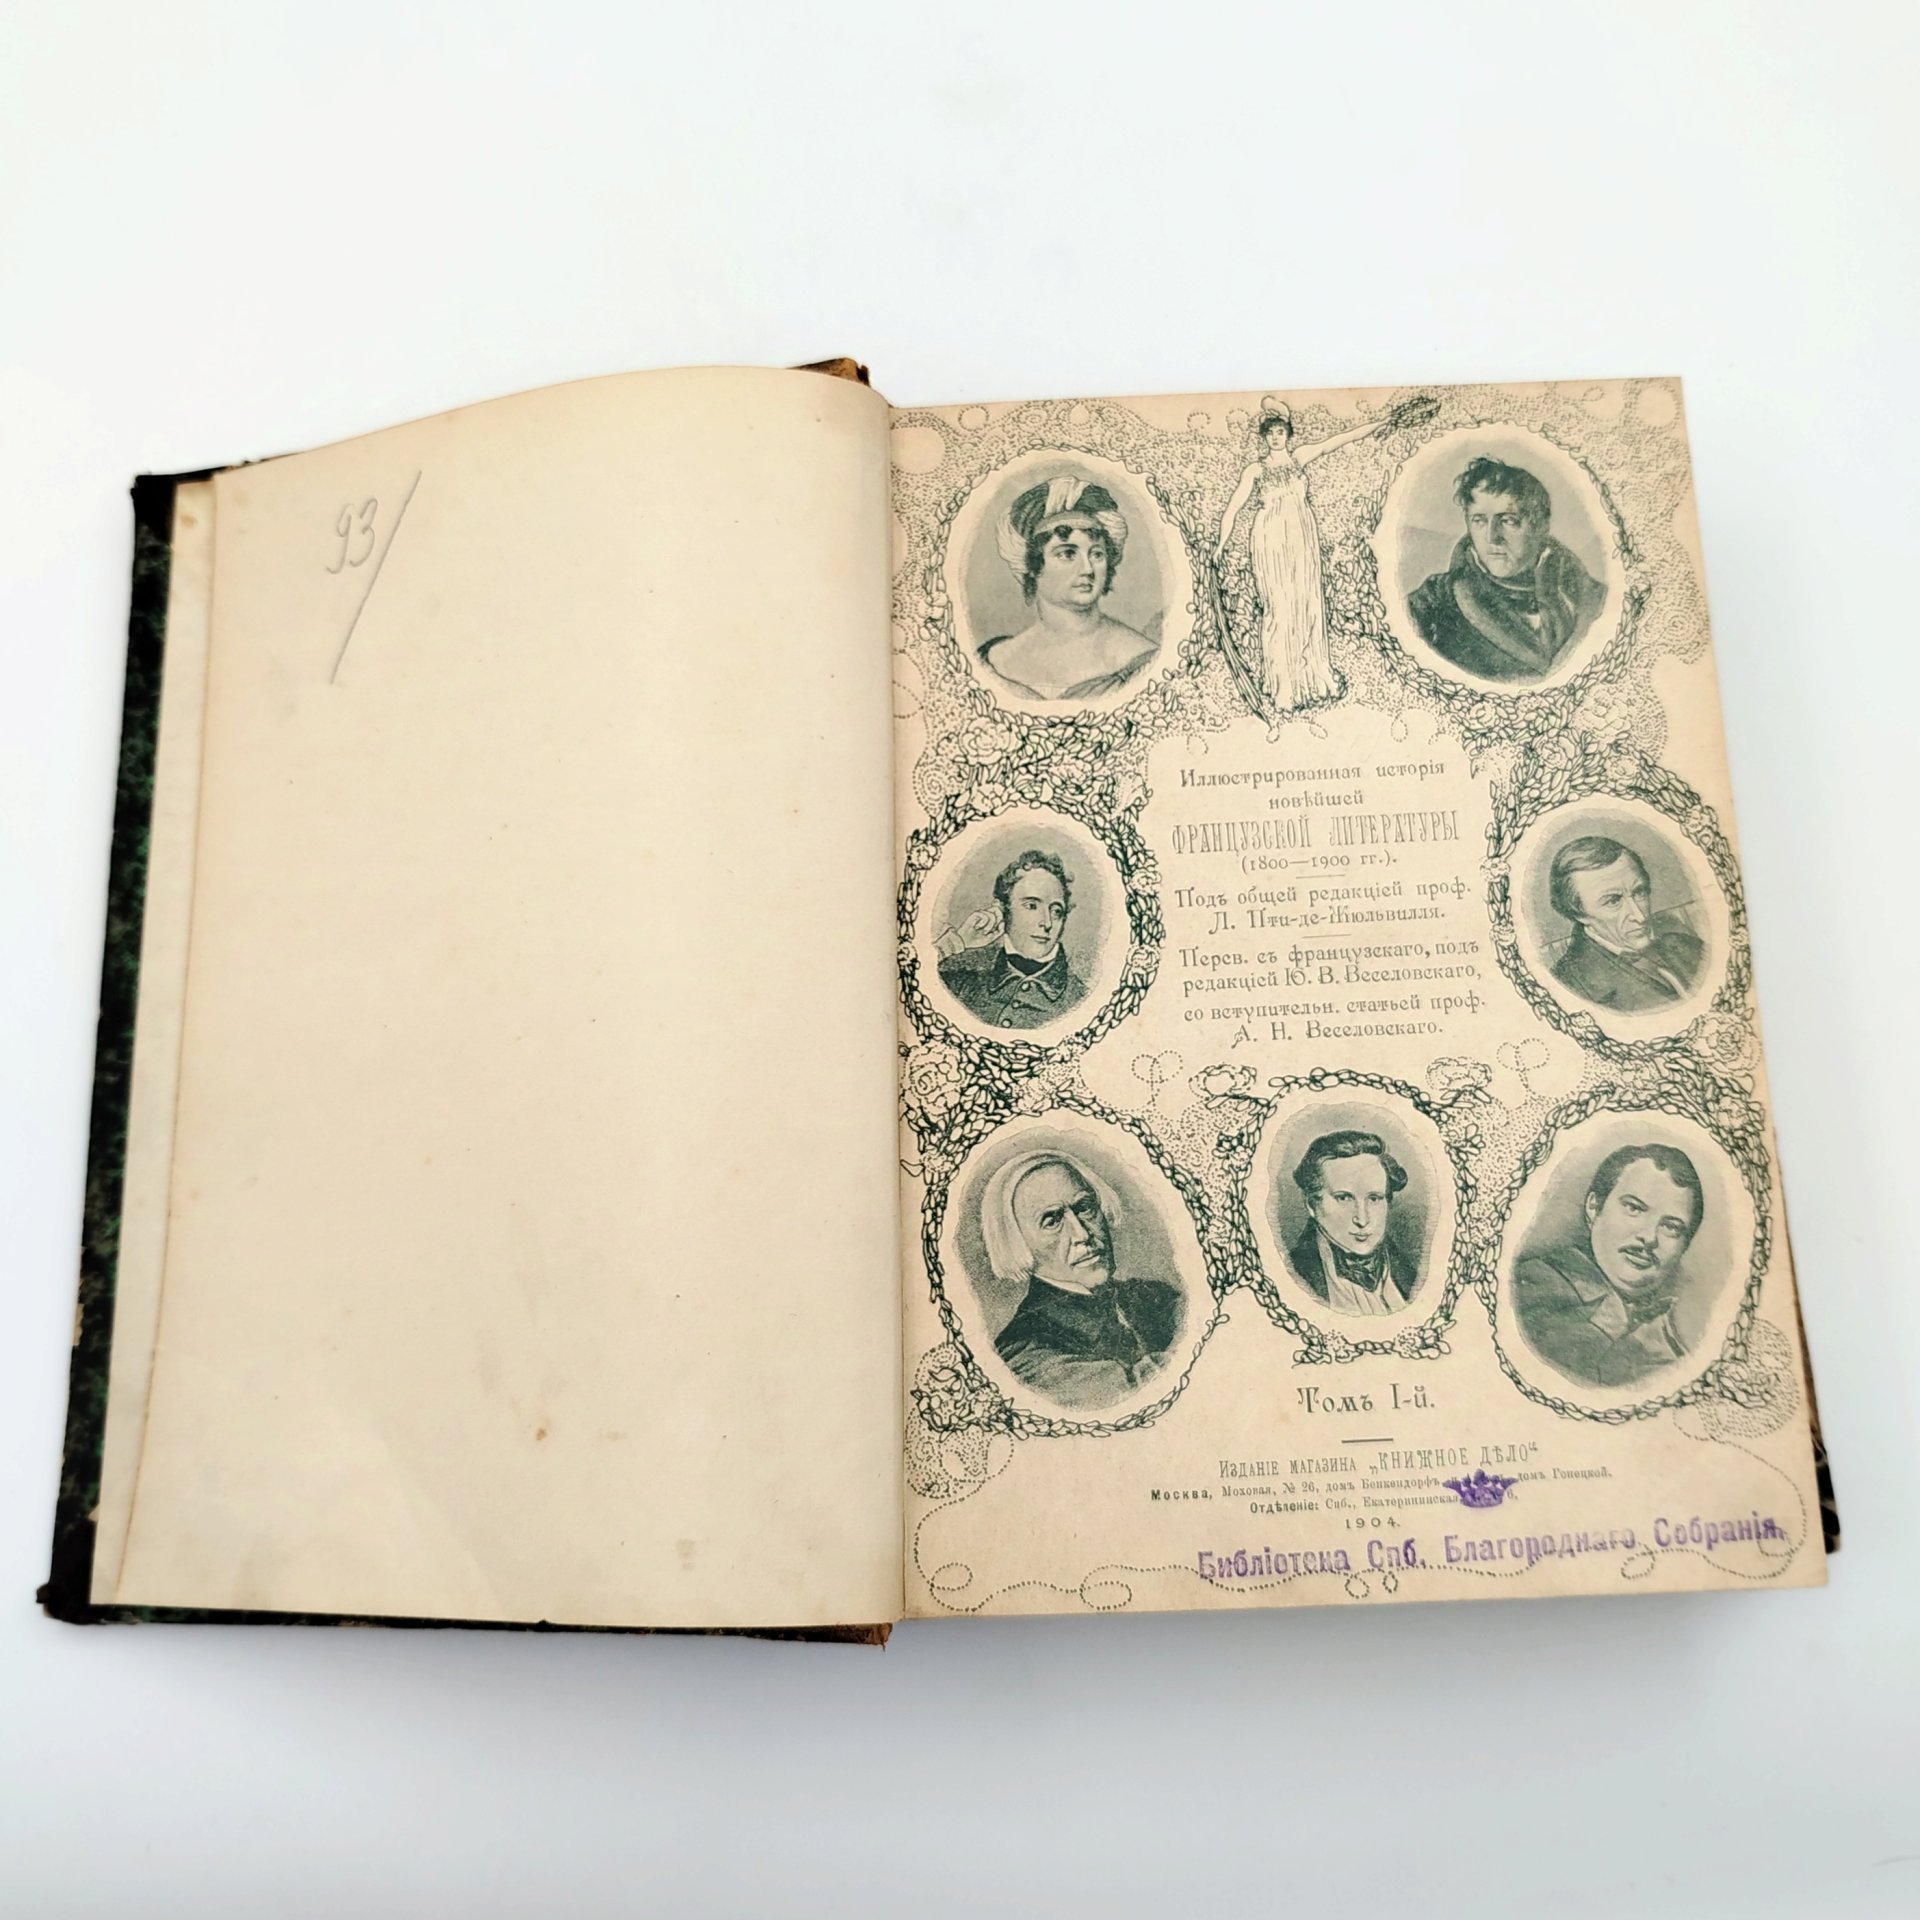 93/
Иллюстрированная исторія
новѣйшей
ФРАНЦУЗСКОЙ ЛИТЕРАТУРЫ
(1800—1900 гг.).
Подъ общей редакціей проф.
Л. Пти-де-Жюльвилля.
Перев. съ французскаго, подъ
редакціей Ю. В. Веселовскаго,
со вступительн. статьей проф.
А. Н. Веселовскаго.
Томъ I-й.
Изданіе магазина „КНИЖНОЕ ДѢЛО“
Москва, Моховая, № 26, домъ Бенкендорфъ домъ Гонецкой.
Отдѣленіе: Спб., Екатерининская 6.
1904.
Библіотека Спб. Благороднаго Собранія.